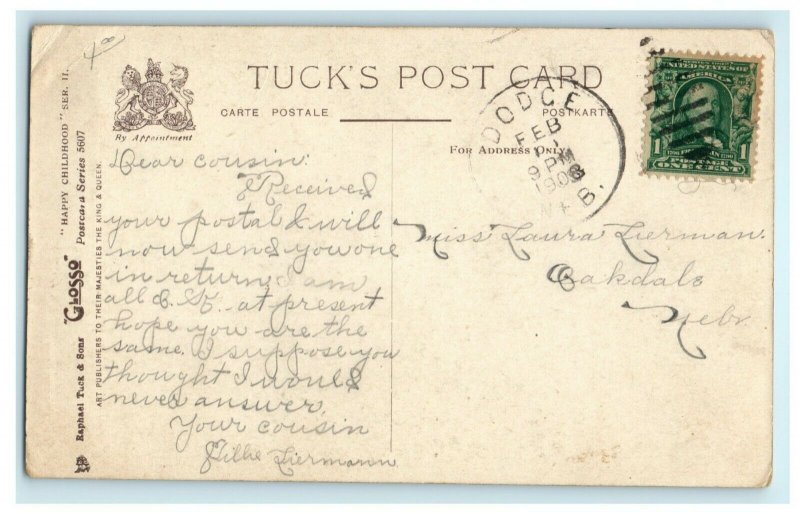 4.00
TUCK'S POST CARD
CARTE POSTALE
POSTKARTE
By Appointment
FOR ADDRESS ONLY
DODGE
FEB
11
9 PM
1908
B.
UNITED STATES OF
AMERICA
1
1
POSTAGE
ONE CENT
Dear cousin:
Received
your postal & will
now send you one
in return, I am
all O.K. at present
hope you are the
same. I suppose you
thought I would
never answer.
Your cousin
Tillie Liermann
Miss Laura Lierman.
Oakdale
Nebr
"HAPPY CHILDHOOD" SER. II.
"GLOSSO" Postcard Series 5607
Raphael Tuck & Sons'
ART PUBLISHERS TO THEIR MAJESTIES THE KING & QUEEN.